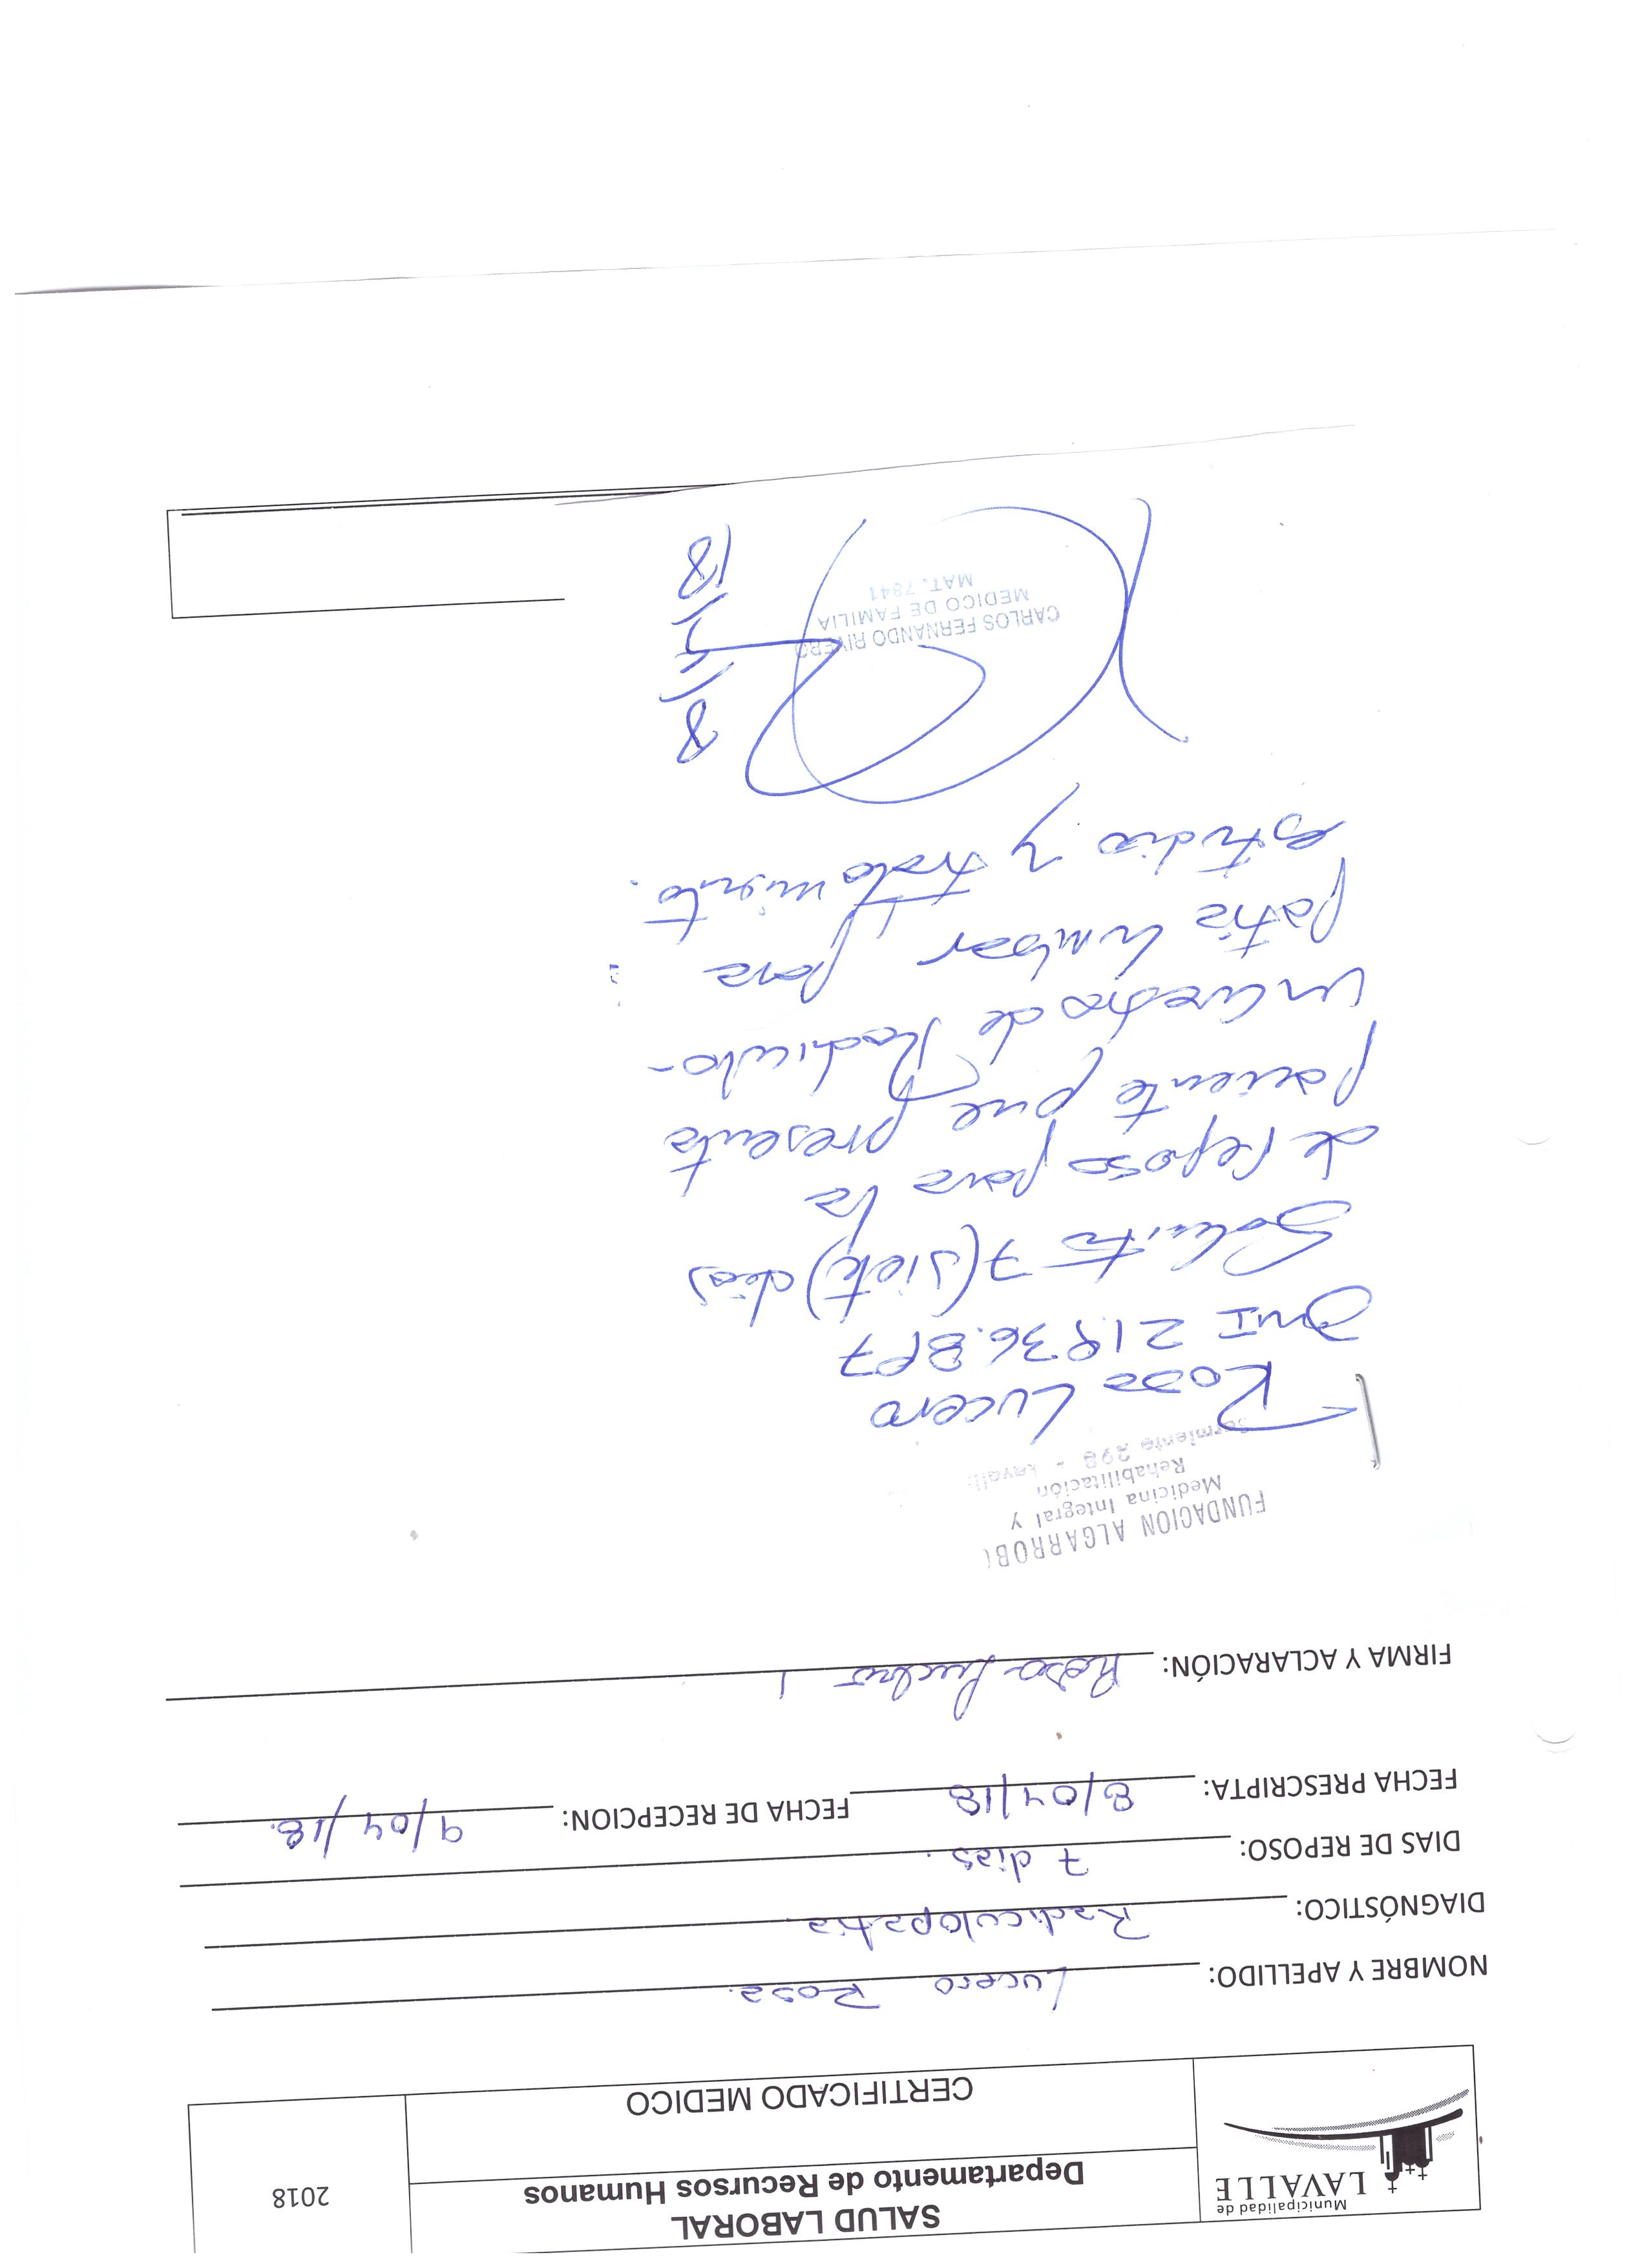 Municipalidad de
LAVALLE
SALUD LABORAL
Departamento de Recursos Humanos
CERTIFICADO MEDICO
2018
NOMBRE Y APELLIDO: Lucero Rosa.
DIAGNÓSTICO: Radiculopatia
DIAS DE REPOSO: 7 dias.
FECHA PRESCRIPTA: 8/04/18 FECHA DE RECEPCION: 9/04/18.
FIRMA Y ACLARACIÓN: Rosa Lucero
FUNDACION ALGARROBO
Medicina Integral Y
Rehabilitación
Sarmiento 298 - Lavalle
Rosa Lucero
DNI
Solicito 7 (siete) dias
de reposo para la
paciente que presenta
un cuadro de Radiculo-
patía lumbar para
estudio y tratamiento.
CARLOS FERNANDO RIVERO
MEDICO DE FAMILIA
MAT. 7841
8/4/18